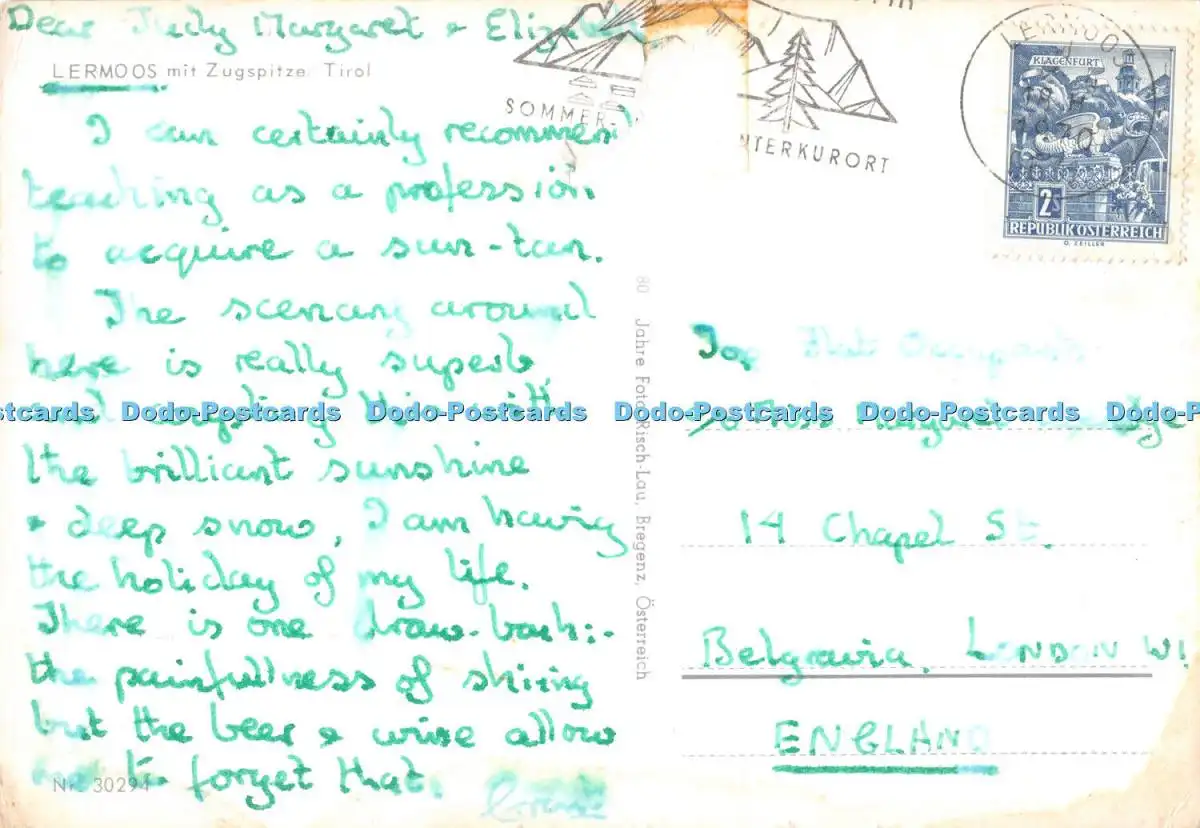 Dear Judy Margaret & Elizabeth
LERMOOS mit Zugspitze, Tirol
I can certainly recommend
teaching as a profession
to acquire a sun-tan.
The scenary around
here is really superb,
and coupling this with
the brilliant sunshine
& deep snow, I am having
the holiday of my life.
There is one draw-back:-
the painfullness of skiing
but the beer & wine allow
to forget that.
Nr. 30294
80 Jahre Foto Risch-Lau, Bregenz, Österreich
SOMMER-
WINTERKURORT
LERMOOS
KLAGENFURT
2s
REPUBLIK ÖSTERREICH
O. ZEILLER
Top Flat Occupants
Miss Margaret
14 Chapel St.
Belgravia, LONDON W1
ENGLAND
stcards Dodo-Postcards Dodo-Postcards Dodo-Postcards Dodo-Postcards Dodo-P